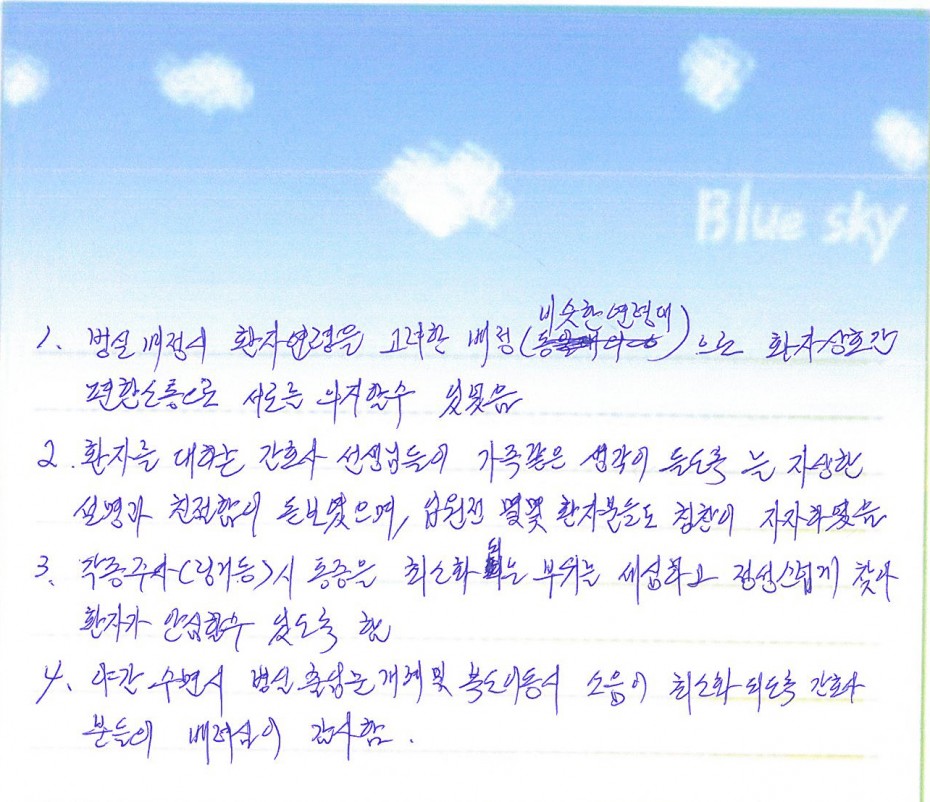 Blue sky
비슷한 연령대
1. 병실배정시 환자연령을 고려한 배정( )으로 환자상호간
편한소통으로 서로를 의지할수 있었음
2. 환자를 대하는 간호사 선생님들이 가족같은 생각이 들도록 늘 자상한
설명과 친절함이 돋보였으며, 입원전 몇몇 환자분들도 칭찬이 자자하였음
3. 각종주사(링거등)시 통증은 최소화되는 부위는 세심하고 정성스럽게 찾아
환자가 안심할수 있도록 함
4. 야간 수면시 병실 출입문개폐 및 복도이동시 소음이 최소화 되도록 간호사
분들의 배려심이 감사함.